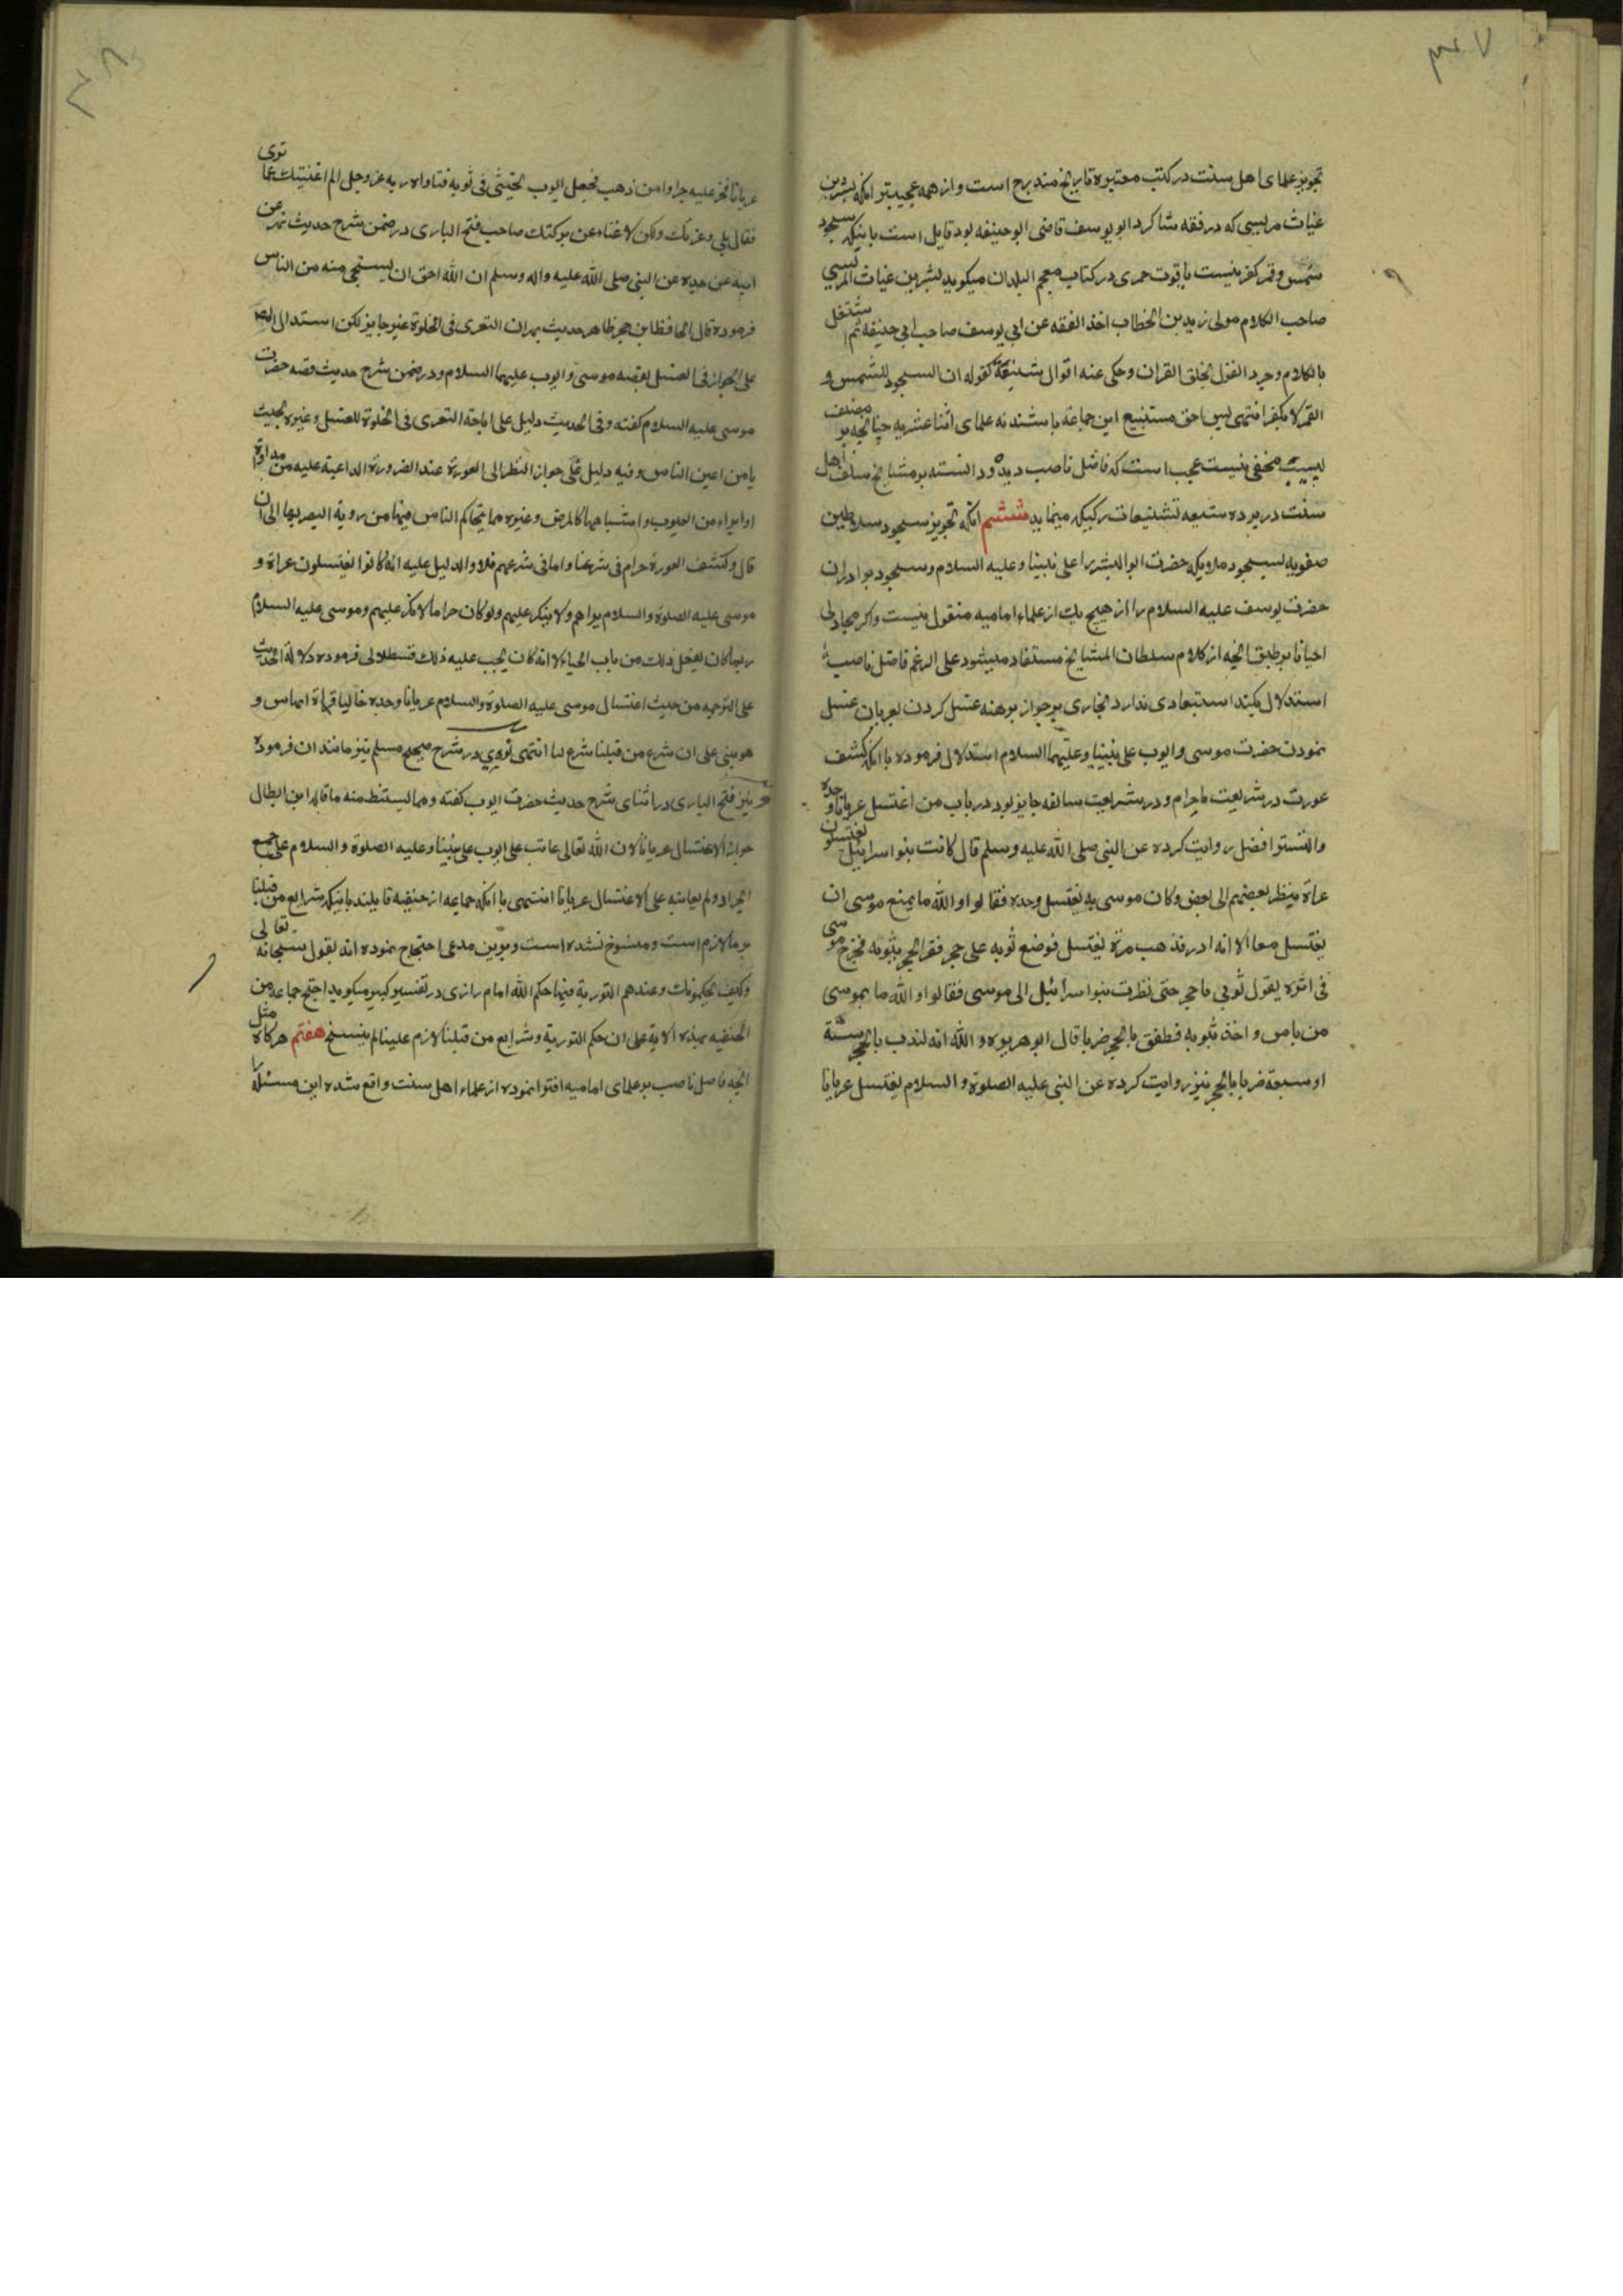 ٣٠٧
تجویز علمای اهل سنت در کتب معتبره تاریخ مندرج است و از همه عجیبتر انکه بشر بن
غیاث مریسی که در فقه شاکرد ابو یوسف قاضی ابو حنیفه بود قایل است باینکه سجود
شمس و قمر کفر نیست یاقوت حمری در کتاب معجم البلدان میکوید بشر بن غیاث المریسی
صاحب الکلام مولی زید بن الخطاب اخذ الفقه عن ابی یوسف صاحب ابی حنیفه ثم اشتغل
بالکلام وجرد القول بخلق القران وحکی عنه اقوال شنیعة کقوله ان السجود للشمس و
القمر لا یکفر انتهی پس احق بتشنیع این جماعة باشند نه علمای اثنا عشریه چنانچه بر مصنف
لبیب مخفی نیست عجب است که فاضل ناصب دیده و دانسته بر مشایخ سلف اهل
سنت در پرده شیعه تشنیعات رکیکه مینماید ششم انکه تجویز سجود سلاطین
صفویه بسجود ملایکه حضرت ابو البشر را علی نبینا وعلیه السلام وسجود برادران
حضرت یوسف علیه السلام را از هیچ یک از علماء امامیه منقول نیست واکر مجادلی
احیانا بر طبق انچه از کلام سلطان المشایخ مستفاد میشود علی الرغم فاضل ناصب
استدلال بکند استبعادی ندارد بخاری بر جواز برهنه غسل کردن بعریان غسل
نمودن حضرت موسی وایوب علی نبینا وعلیهما السلام استدلال فرموده با انکه کشف
عورت در شریعت ما حرام و در شرایعت سالفه جایز بود در باب من اغتسل عریانا وحده
والتستر افضل روایت کرده عن النبی صلی الله علیه وسلم قال کانت بنو اسرائیل یغتسلون
عراة ینظر بعضهم الی بعض وکان موسی یغتسل وحده فقالوا والله ما یمنع موسی ان
یغتسل معنا الا انه ادر فذهب مرة یغتسل فوضع ثوبه علی حجر ففر الحجر بثوبه فخرج موسی
فی اثره یقول ثوبی یا حجر حتی نظرت بنو اسرائیل الی موسی فقالوا والله ما بموسی
من باس واخذ ثوبه فطفق بالحجر ضربا قال ابو هریره والله انه لندب بالحجر ستة
او سبعة ضربا بالحجر نیز روایت کرده عن النبی علیه الصلوة والسلام یغتسل عریانا
٣٠٨
عریانا فخر علیه جراد من ذهب فجعل ایوب یحتثی فی ثوبه فناداه ربه عز وجل الم اغنیتک عما تری
فقال بلی وعزتک ولکن لا غناء عن برکتک صاحب فتح الباری در ضمن شرح حدیث بهز عن
ابیه عن جده عن النبی صلی الله علیه واله وسلم ان الله احق ان یستحی منه من الناس
فرموده قال الحافظ ابن حجر ظاهر حدیث بهز ان التعری فی الخلوة غیر جایز لکن استدل المص
علی الجواز فی الغسل بقصه موسی وایوب علیهما السلام ودر ضمن شرح حدیث قصه حضرت
موسی علیه السلام کفته وفی الحدیث دلیل علی اباحة التعری فی الخلوة للغسل وغیره بحیث
یامن اعین الناس وفیه دلیل علی جواز النظر الی العورة عند الضرورة الداعیة علیه من مداواة
او ابراء من العیوب واشباهها کالمرض وغیره مما یتحاکم الناس فیها من رویة البصر بها الی ان
قال وکشف العورة حرام فی شرعنا واما فی شرعهم فلا والدلیل علیه انه کانوا یغتسلون عراة و
موسی علیه الصلوة والسلام یراهم ولا ینکر علیهم ولو کان حراما لانکر علیهم وموسی علیه السلام
ربما کان یفعل ذلک من باب الحیاء لا انه کان یجب علیه ذلک قسطلانی فرموده دلالة الحدیث
علی الترجمه من حیث اغتسال موسی علیه الصلوة والسلام عریانا وحده خالیا من الناس و
هو یبنی علی ان شرع من قبلنا شرع لنا انتهی نووی در شرح صحیح مسلم نیز مانند ان فرموده
ونیز فتح الباری در اثنای شرح حدیث حضرت ایوب کفته ومما یستنبط منه ما قاله ابن البطال
جواز الاغتسال عریانا لان الله تعالی عاتب علی ایوب علی نبینا وعلیه الصلوة والسلام علی جمع
الجراد ولم یعاتبه علی الاغتسال عریانا انتهی با انکه جماعه از حنفیه قایلند باینکه شرایع من قبلنا
بر ما لازم است ومنسوخ نشده است وبرین مدعی احتجاج نموده انه بقول سبحانه تعالی
وکیف یحکمونک وعندهم التوریة فیها حکم الله امام رازی در تفسیر کبیر میکوید احتج جماعه من
الحنفیه بهذه الایة علی ان حکم التوریة وشرایع من قبلنا لازم علینا لم ینسخ هفتم هرکاه مثل
انچه فاضل ناصب بر علمای امامیه افترا نموده از علماء اهل سنت واقع شده این مسئله را